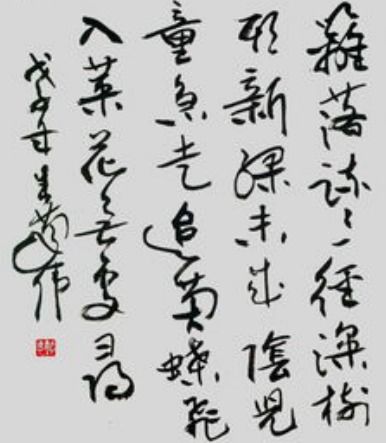 籬落疏々一徑深樹
頭新綠未成陰兒
童急走追黃蝶飛
入菜花無處尋
戊子